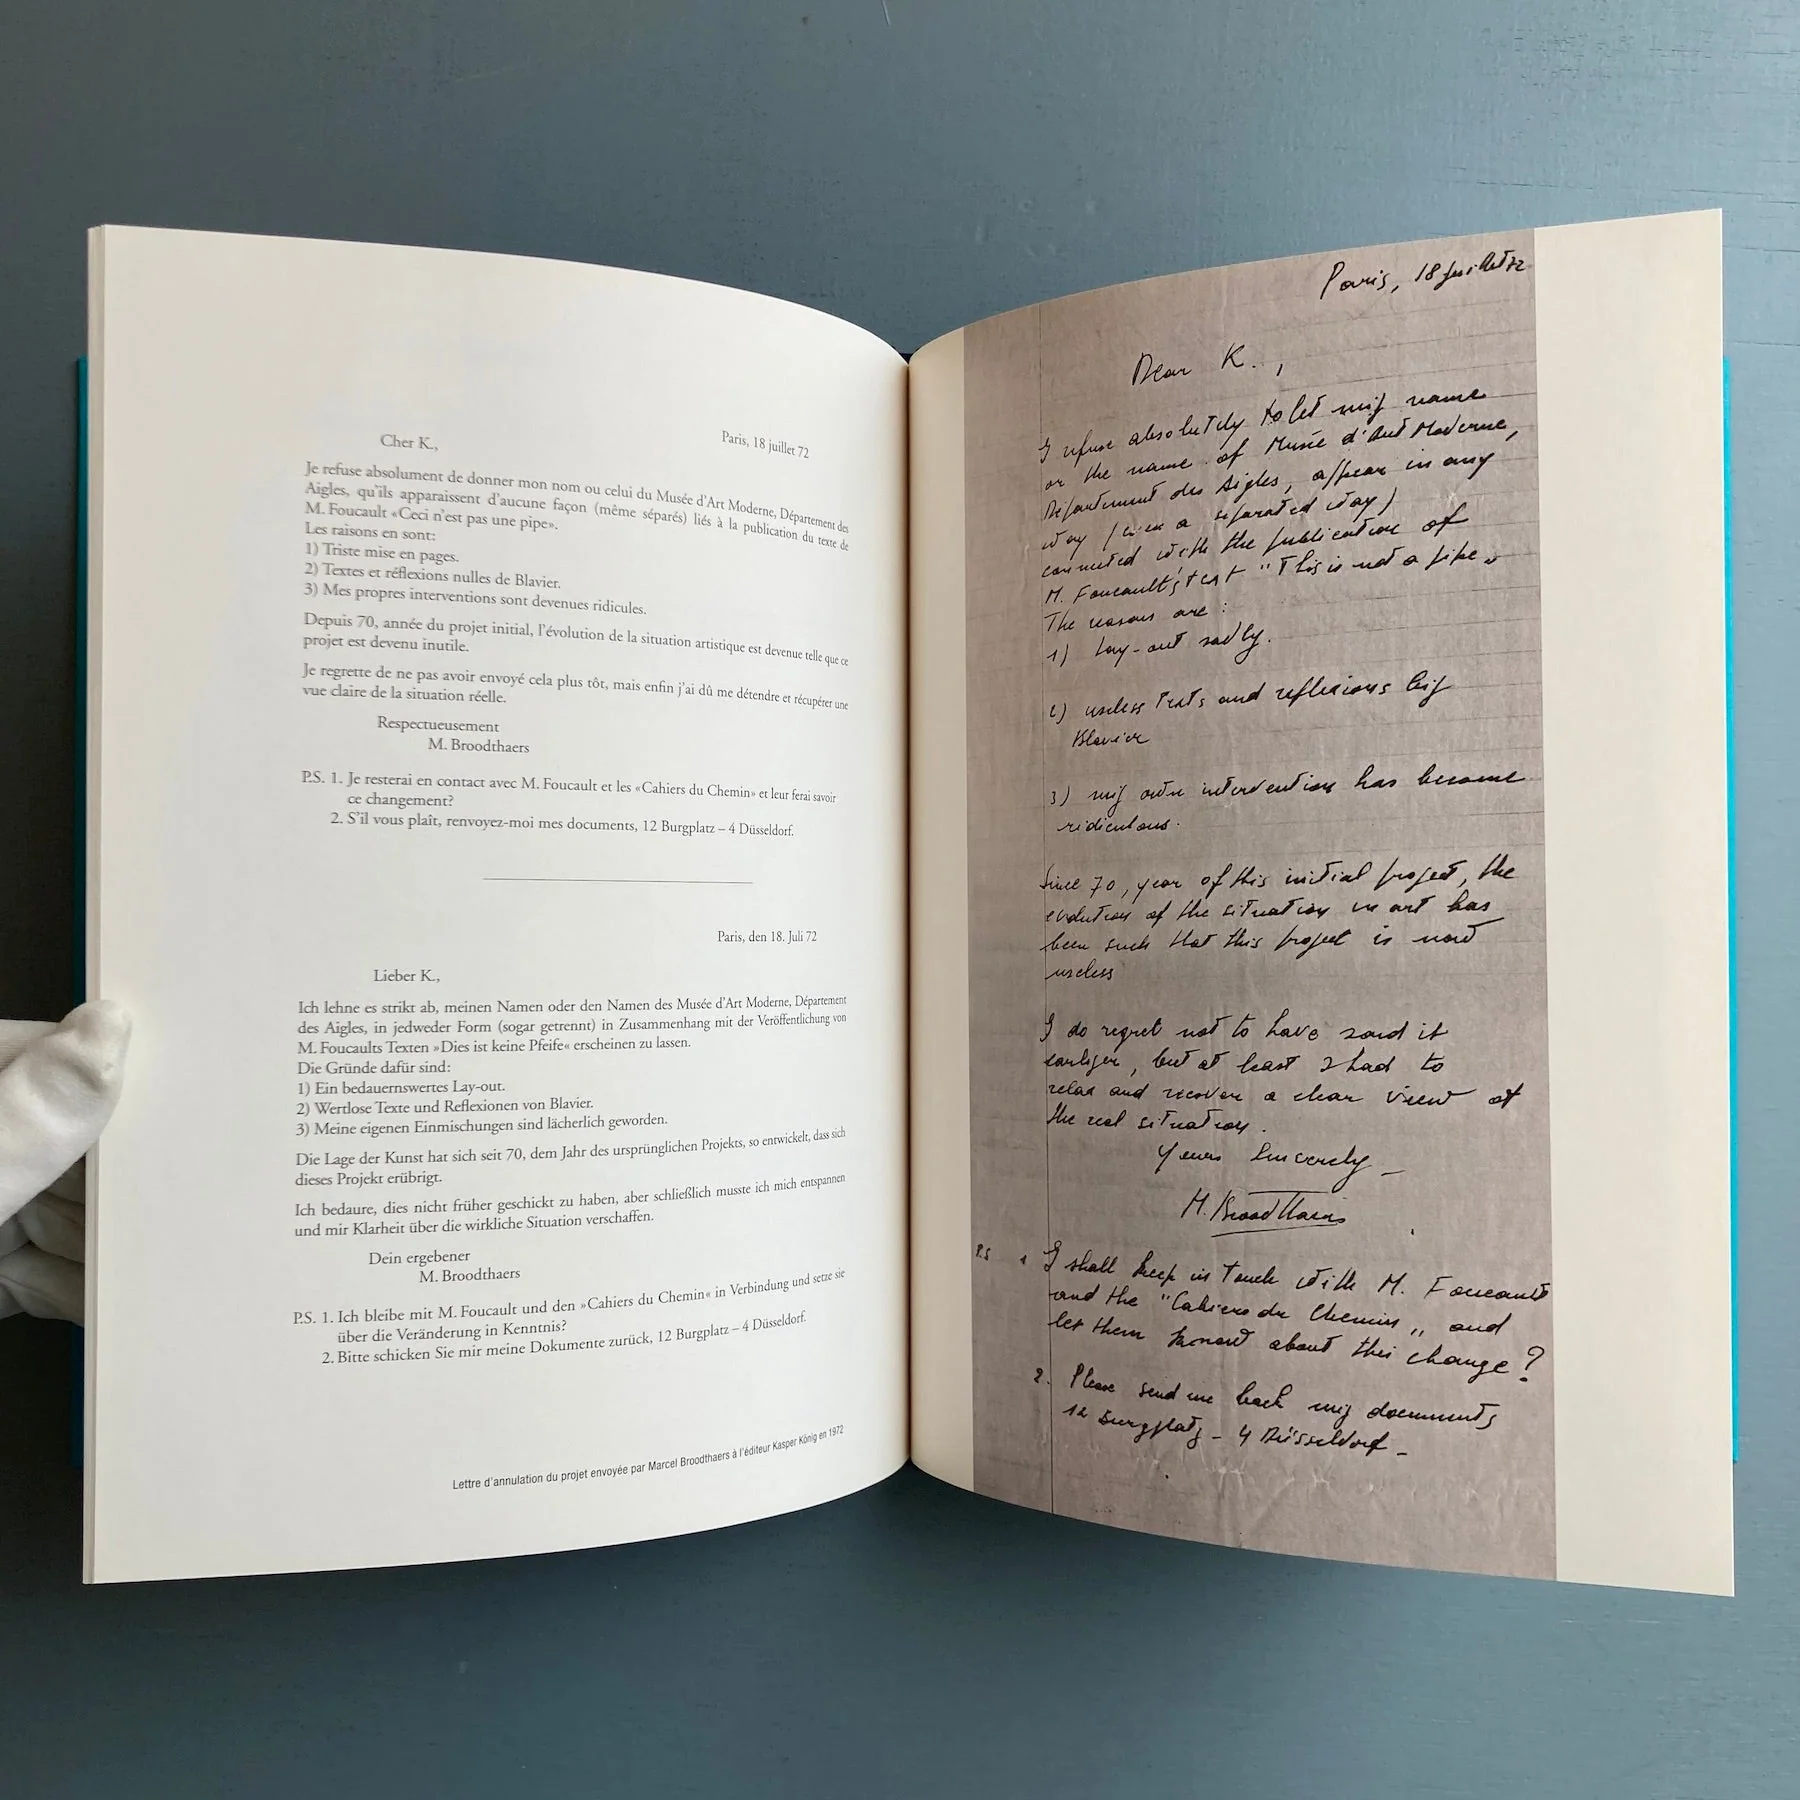 Cher K.,
Paris, 18 juillet 72
Je refuse absolument de donner mon nom ou celui du Musée d'Art Moderne, Département des
Aigles, qu'ils apparaissent d'aucune façon (même séparés) liés à la publication du texte de
M. Foucault «Ceci n'est pas une pipe».
Les raisons en sont:
1) Triste mise en pages.
2) Textes et réflexions nulles de Blavier.
3) Mes propres interventions sont devenues ridicules.
Depuis 70, année du projet initial, l'évolution de la situation artistique est devenue telle que ce
projet est devenu inutile.
Je regrette de ne pas avoir envoyé cela plus tôt, mais enfin j'ai dû me détendre et récupérer une
vue claire de la situation réelle.
Respectueusement
M. Broodthaers
P.S. 1. Je resterai en contact avec M. Foucault et les «Cahiers du Chemin» et leur ferai savoir
ce changement?
2. S'il vous plaît, renvoyez-moi mes documents, 12 Burgplatz – 4 Düsseldorf.
Paris, den 18. Juli 72
Lieber K.,
Ich lehne es strikt ab, meinen Namen oder den Namen des Musée d'Art Moderne, Département
des Aigles, in jedweder Form (sogar getrennt) in Zusammenhang mit der Veröffentlichung von
M. Foucaults Texten »Dies ist keine Pfeife« erscheinen zu lassen.
Die Gründe dafür sind:
1) Ein bedauernswertes Lay-out.
2) Wertlose Texte und Reflexionen von Blavier.
3) Meine eigenen Einmischungen sind lächerlich geworden.
Die Lage der Kunst hat sich seit 70, dem Jahr des ursprünglichen Projekts, so entwickelt, dass sich
dieses Projekt erübrigt.
Ich bedaure, dies nicht früher geschickt zu haben, aber schließlich musste ich mich entspannen
und mir Klarheit über die wirkliche Situation verschaffen.
Dein ergebener
M. Broodthaers
P.S. 1. Ich bleibe mit M. Foucault und den »Cahiers du Chemin« in Verbindung und setze sie
über die Veränderung in Kenntnis?
2. Bitte schicken Sie mir meine Dokumente zurück, 12 Burgplatz – 4 Düsseldorf.
Lettre d'annulation du projet envoyée par Marcel Broodthaers à l'éditeur Kasper König en 1972
Paris, 18 juillet 72
Dear K.,
I refuse absolutely to let my name
or the name of Musée d'Art Moderne,
Département des Aigles, appear in any
way (even a separated way)
connected with the publication of
M. Foucault's text "This is not a pipe„
The reasons are :
1) Lay-out sadly.
2) useless texts and reflexions by
Blavier
3) my own intervention has become
ridiculous.
Since 70, year of this initial project, the
evolution of the situation in art has
been such that this project is now
useless
I do regret not to have send it
earliger, but at least I had to
relax and recover a clear view of
the real situation.
Yours Sincerely –
M. Broodthaers
P.S 1 I shall keep in touch with M. Foucault
and the "Cahiers du Chemin„ and
let them know about this change?
2. Please send me back my documents
12 Burgplatz – 4 Düsseldorf –